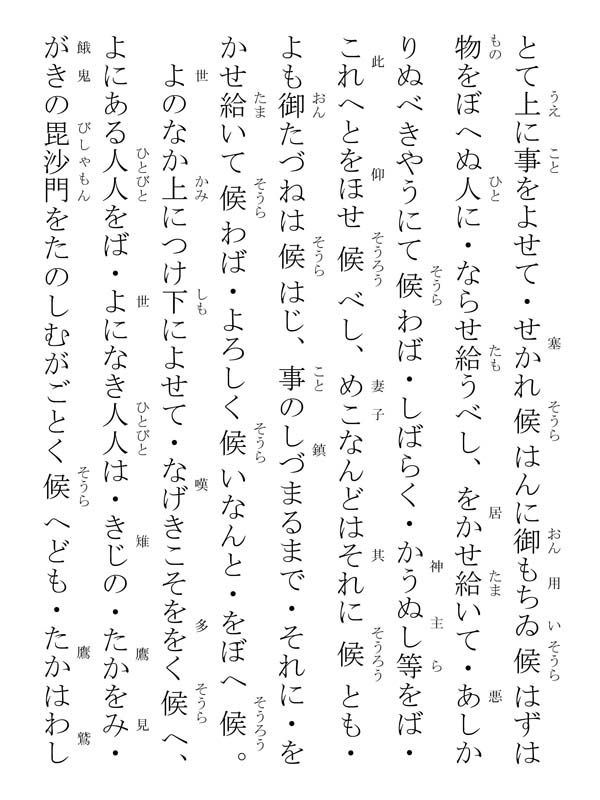 とて上に事をよせて・せかれ候はんに御もちゐ候はずは
物をぼへぬ人に・ならせ給うべし、をかせ給いて・あしか
りぬべきやうにて候わば・しばらく・かうぬし等をば・
これへとをほせ候べし、めこなんどはそれに候とも・
よも御たづねは候はじ、事のしづまるまで・それに・を
かせ給いて候わば・よろしく候いなんと・をぼへ候。
よのなか上につけ下によせて・なげきこそををく候へ、
よにある人人をば・よになき人人は・きじの・たかをみ・
がきの毘沙門をたのしむがごとく候へども・たかはわし